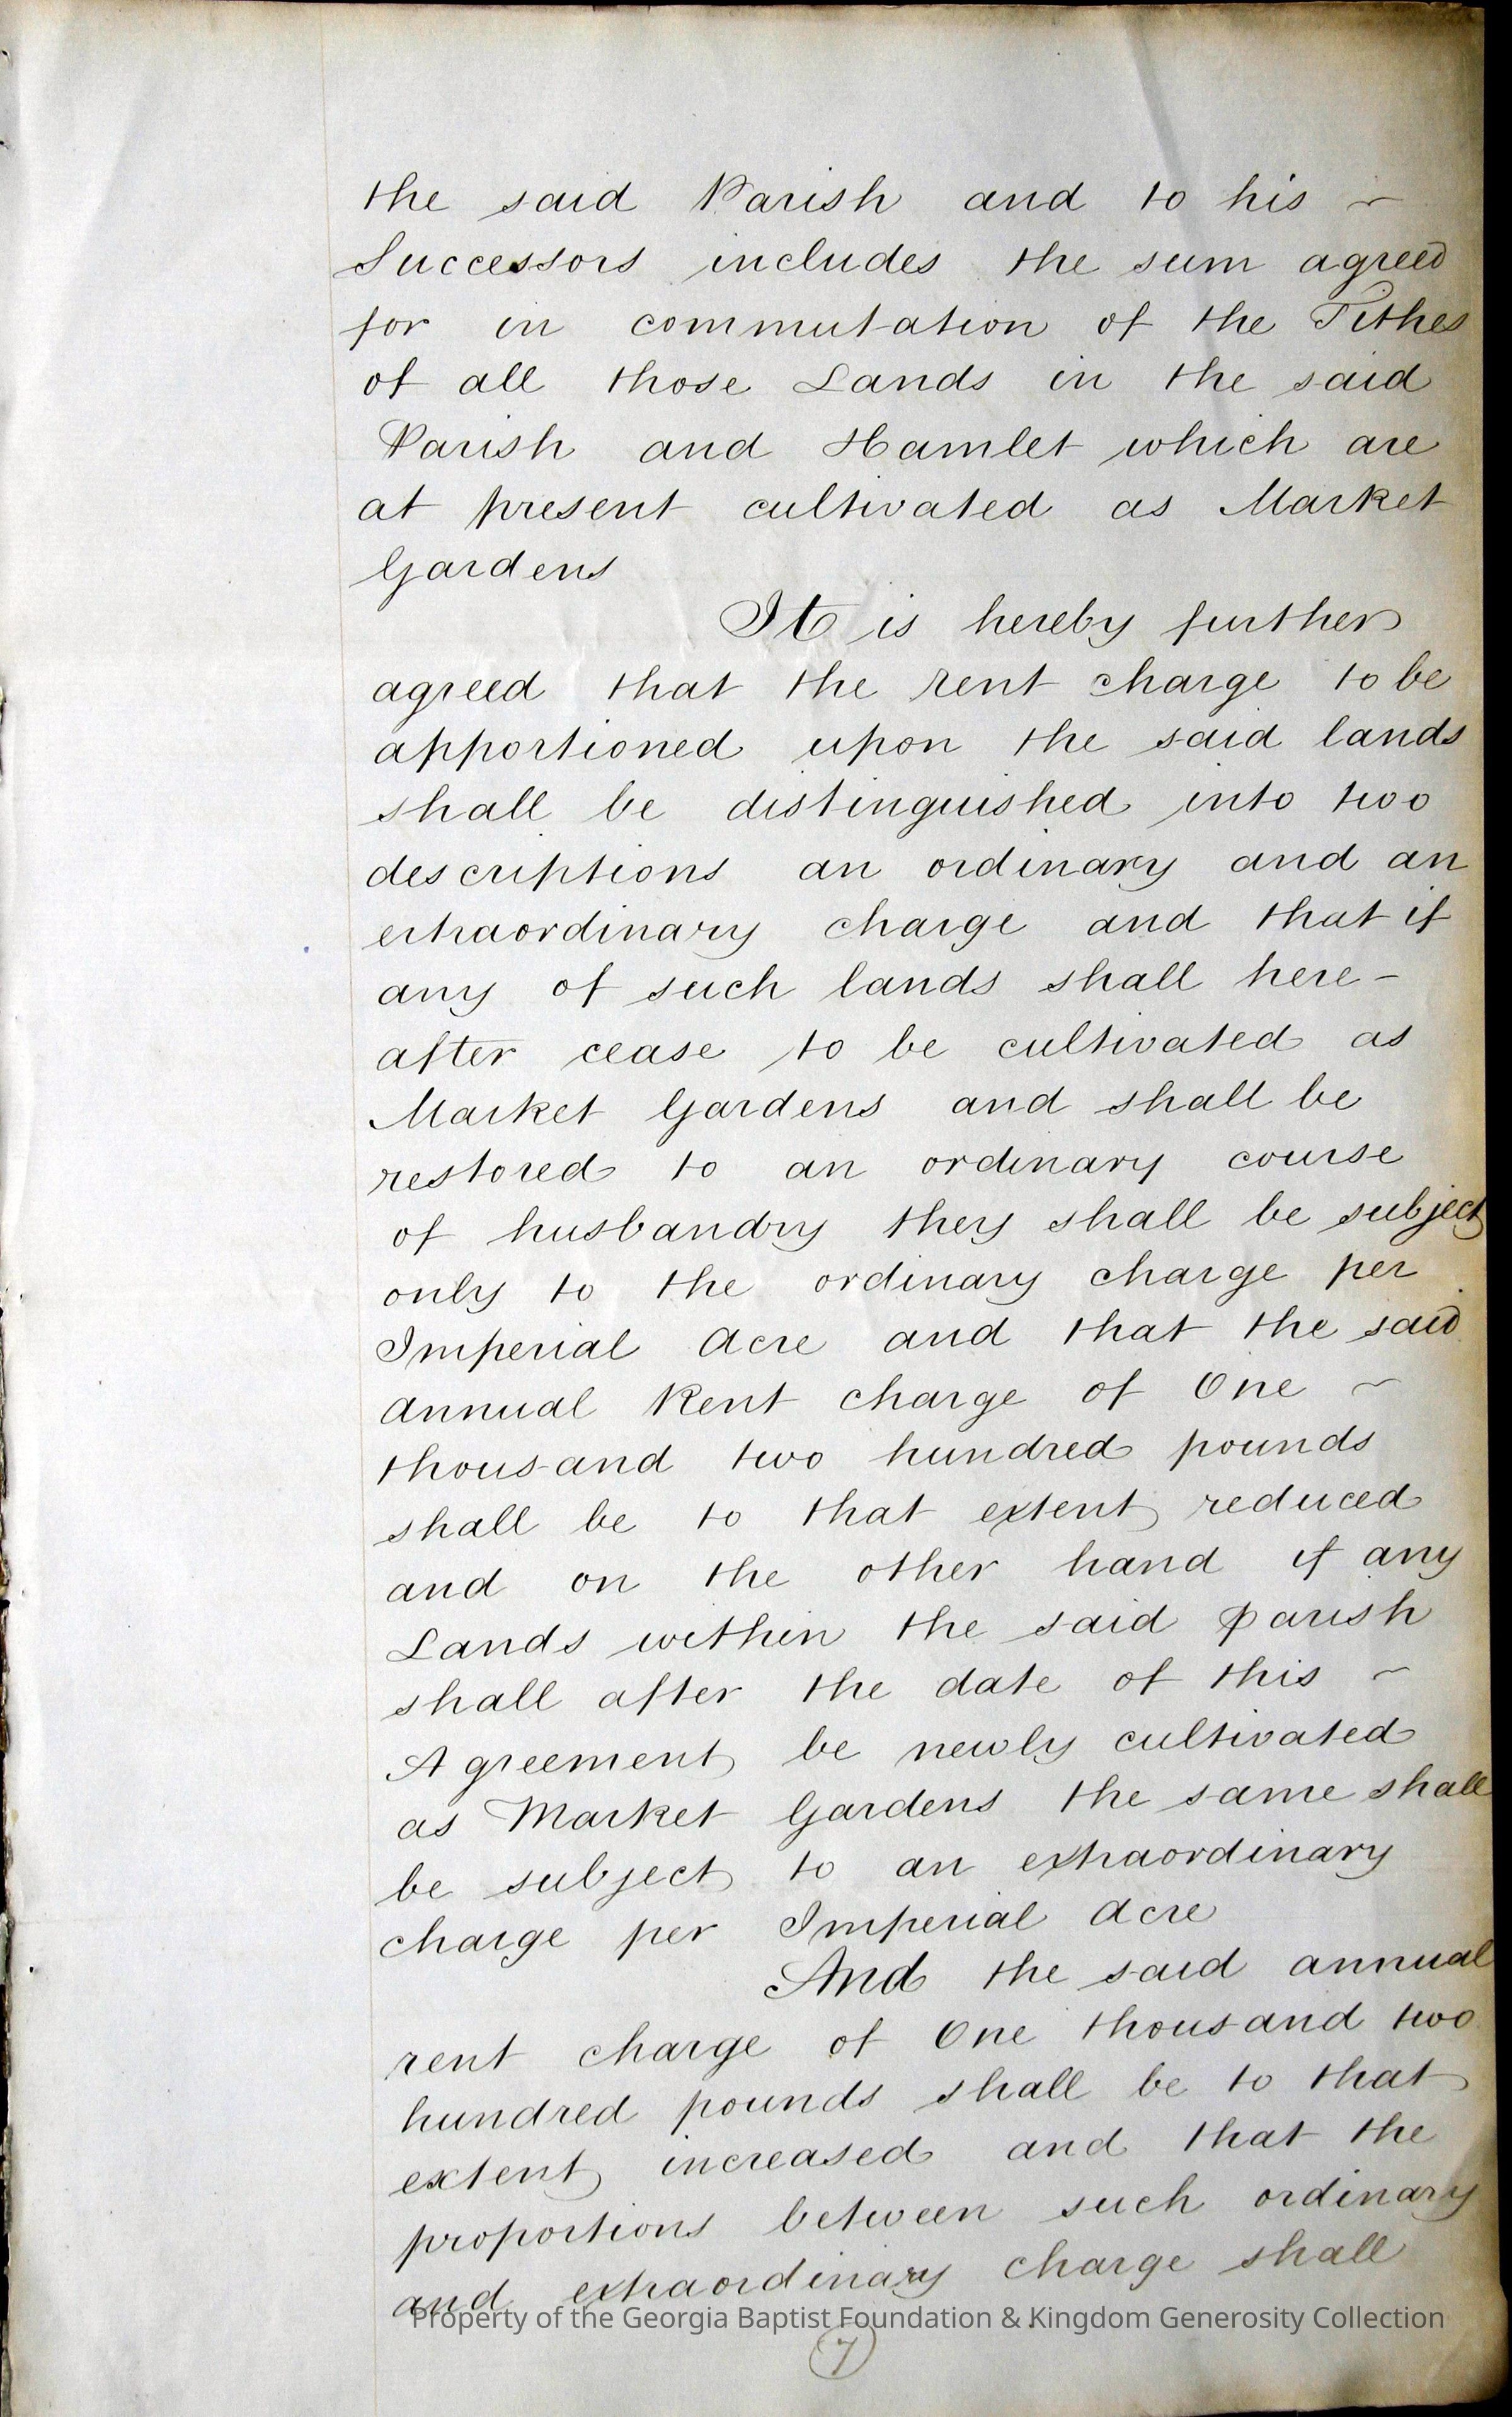 the said Parish and to his ~
Successors includes the sum agreed
for in commutation of the Tithes
of all those Lands in the said
Parish and Hamlet which are
at present cultivated as Market
Gardens
It is hereby further
agreed that the rent charge to be
apportioned upon the said lands
shall be distinguished into two
descriptions an ordinary and an
extraordinary charge and that if
any of such lands shall here-
after cease to be cultivated as
Market Gardens and shall be
restored to an ordinary course
of husbandry they shall be subject
only to the ordinary charge per
Imperial Acre and that the said
annual Rent charge of One ~
thousand two hundred pounds
shall be to that extent reduced
and on the other hand if any
Lands within the said Parish
shall after the date of this ~
Agreement be newly cultivated
as Market Gardens the same shall
be subject to an extraordinary
charge per Imperial Acre
And the said annual
rent charge of One thousand two
hundred pounds shall be to that
extent increased and that the
proportions between such ordinary
and extraordinary charge shall
Property of the Georgia Baptist Foundation & Kingdom Generosity Collection
7